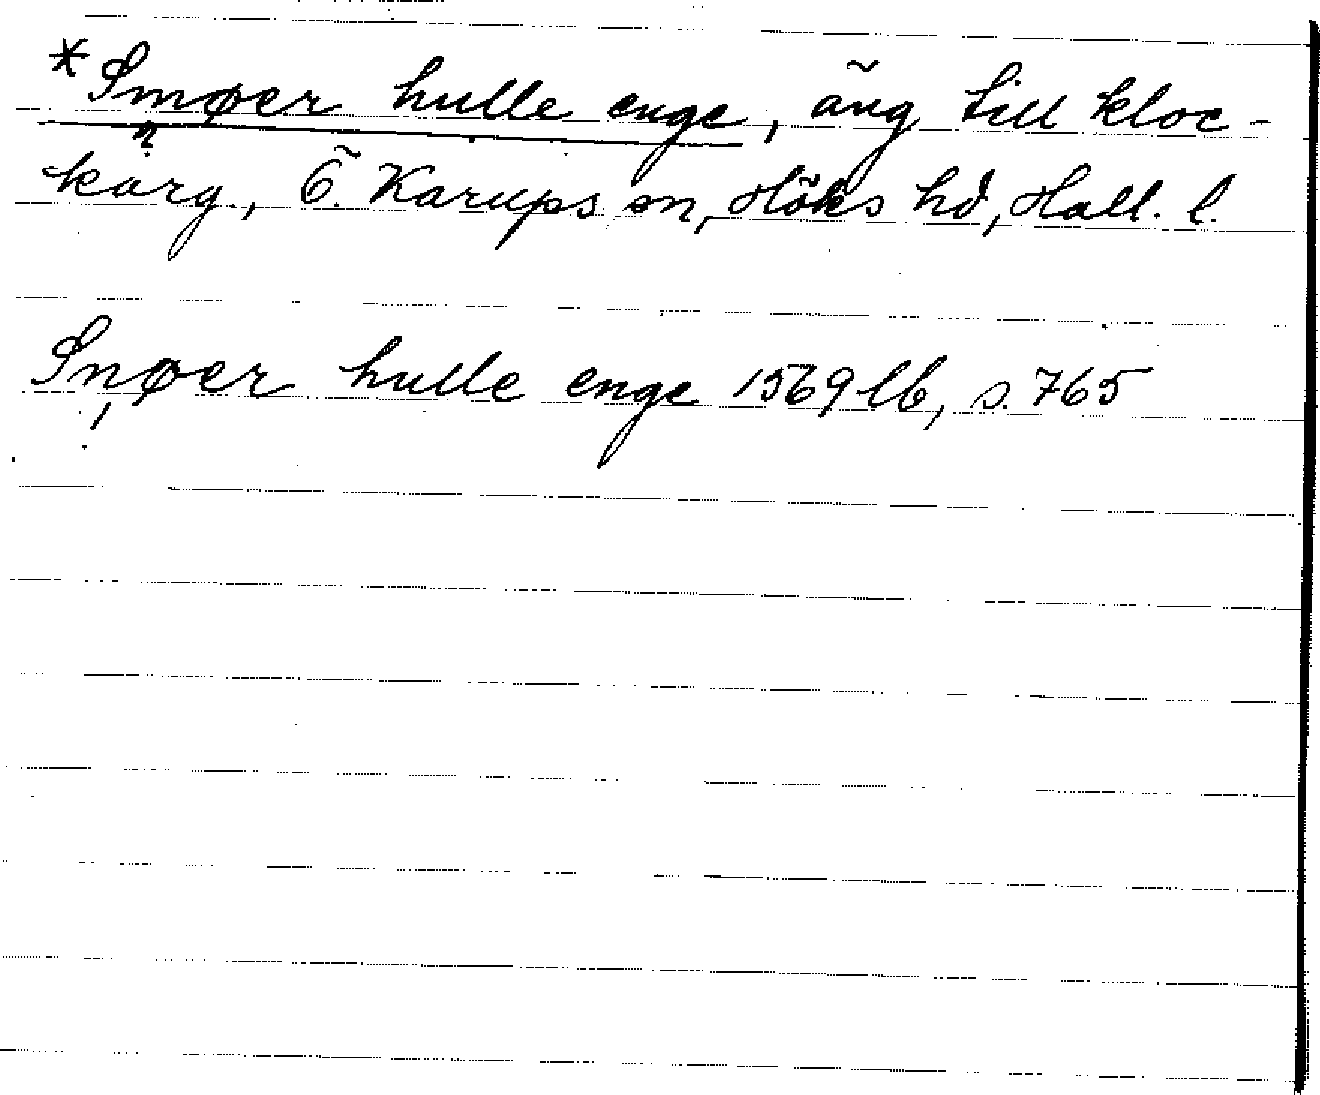 *Smøer hulle enge, äng till kloc-
kärg., Ö. Karups sn, Höks hd, Hall. l.
Snøer hulle enge 1569 lb, s. 765